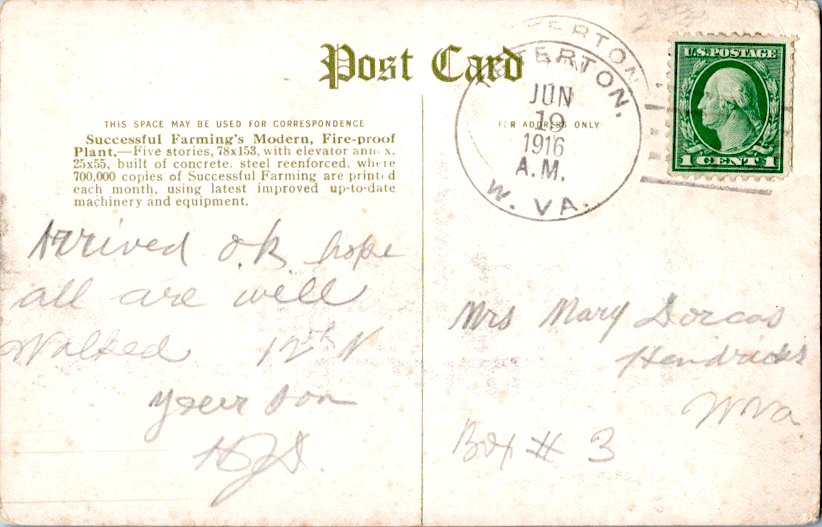 Post Card
THIS SPACE MAY BE USED FOR CORRESPONDENCE
Successful Farming's Modern, Fire-proof
Plant.—Five stories, 78x153, with elevator annex,
25x55, built of concrete, steel reenforced, where
700,000 copies of Successful Farming are printed
each month, using latest improved up-to-date
machinery and equipment.
Arrived O.K. hope
all are well
Walked 12
your son
FOR ADDRESS ONLY
JUN
19
1916
A.M.
W. VA.
U.S. POSTAGE
1 CENT 1
Mrs Mary Dorcas
Hendricks
W Va
Box # 3